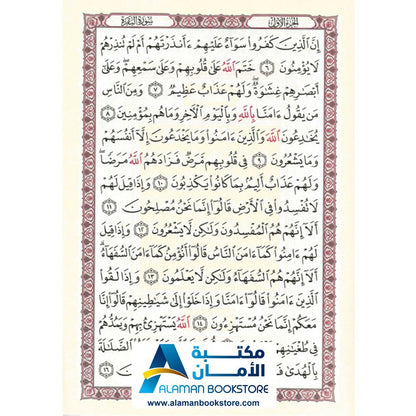 الجزء الأول سورة البقرة
إِنَّ ٱلَّذِينَ كَفَرُوا۟ سَوَآءٌ عَلَيْهِمْ ءَأَنذَرْتَهُمْ أَمْ لَمْ تُنذِرْهُمْ
لَا يُؤْمِنُونَ ٦ خَتَمَ ٱللَّهُ عَلَىٰ قُلُوبِهِمْ وَعَلَىٰ سَمْعِهِمْ ۖ وَعَلَىٰٓ
أَبْصَـٰرِهِمْ غِشَـٰوَةٌ ۖ وَلَهُمْ عَذَابٌ عَظِيمٌ ٧ وَمِنَ ٱلنَّاسِ
مَن يَقُولُ ءَامَنَّا بِٱللَّهِ وَبِٱلْيَوْمِ ٱلْـَٔاخِرِ وَمَا هُم بِمُؤْمِنِينَ ٨
يُخَـٰدِعُونَ ٱللَّهَ وَٱلَّذِينَ ءَامَنُوا۟ وَمَا يَخْدَعُونَ إِلَّآ أَنفُسَهُمْ
وَمَا يَشْعُرُونَ ٩ فِى قُلُوبِهِم مَّرَضٌ فَزَادَهُمُ ٱللَّهُ مَرَضًا ۖ
وَلَهُمْ عَذَابٌ أَلِيمٌۢ بِمَا كَانُوا۟ يَكْذِبُونَ ١٠ وَإِذَا قِيلَ لَهُمْ
لَا تُفْسِدُوا۟ فِى ٱلْأَرْضِ قَالُوٓا۟ إِنَّمَا نَحْنُ مُصْلِحُونَ ١١
أَلَآ إِنَّهُمْ هُمُ ٱلْمُفْسِدُونَ وَلَـٰكِن لَّا يَشْعُرُونَ ١٢ وَإِذَا قِيلَ
لَهُمْ ءَامِنُوا۟ كَمَآ ءَامَنَ ٱلنَّاسُ قَالُوٓا۟ أَنُؤْمِنُ كَمَآ ءَامَنَ ٱلسُّفَهَآءُ ۗ
أَلَآ إِنَّهُمْ هُمُ ٱلسُّفَهَآءُ وَلَـٰكِن لَّا يَعْلَمُونَ ١٣ وَإِذَا لَقُوا۟
ٱلَّذِينَ ءَامَنُوا۟ قَالُوٓا۟ ءَامَنَّا وَإِذَا خَلَوْا۟ إِلَىٰ شَيَـٰطِينِهِمْ قَالُوٓا۟ إِنَّا
مَعَكُمْ إِنَّمَا نَحْنُ مُسْتَهْزِءُونَ ١٤ ٱللَّهُ يَسْتَهْزِئُ بِهِمْ وَيَمُدُّهُمْ
فِى طُغْيَـٰنِهِمْ ٱلضَّلَـٰلَةَ
بِٱلْهُدَىٰ ١٦
مكتبة
الأمان
ALAMAN BOOKSTORE
www.alamanbookstore.com